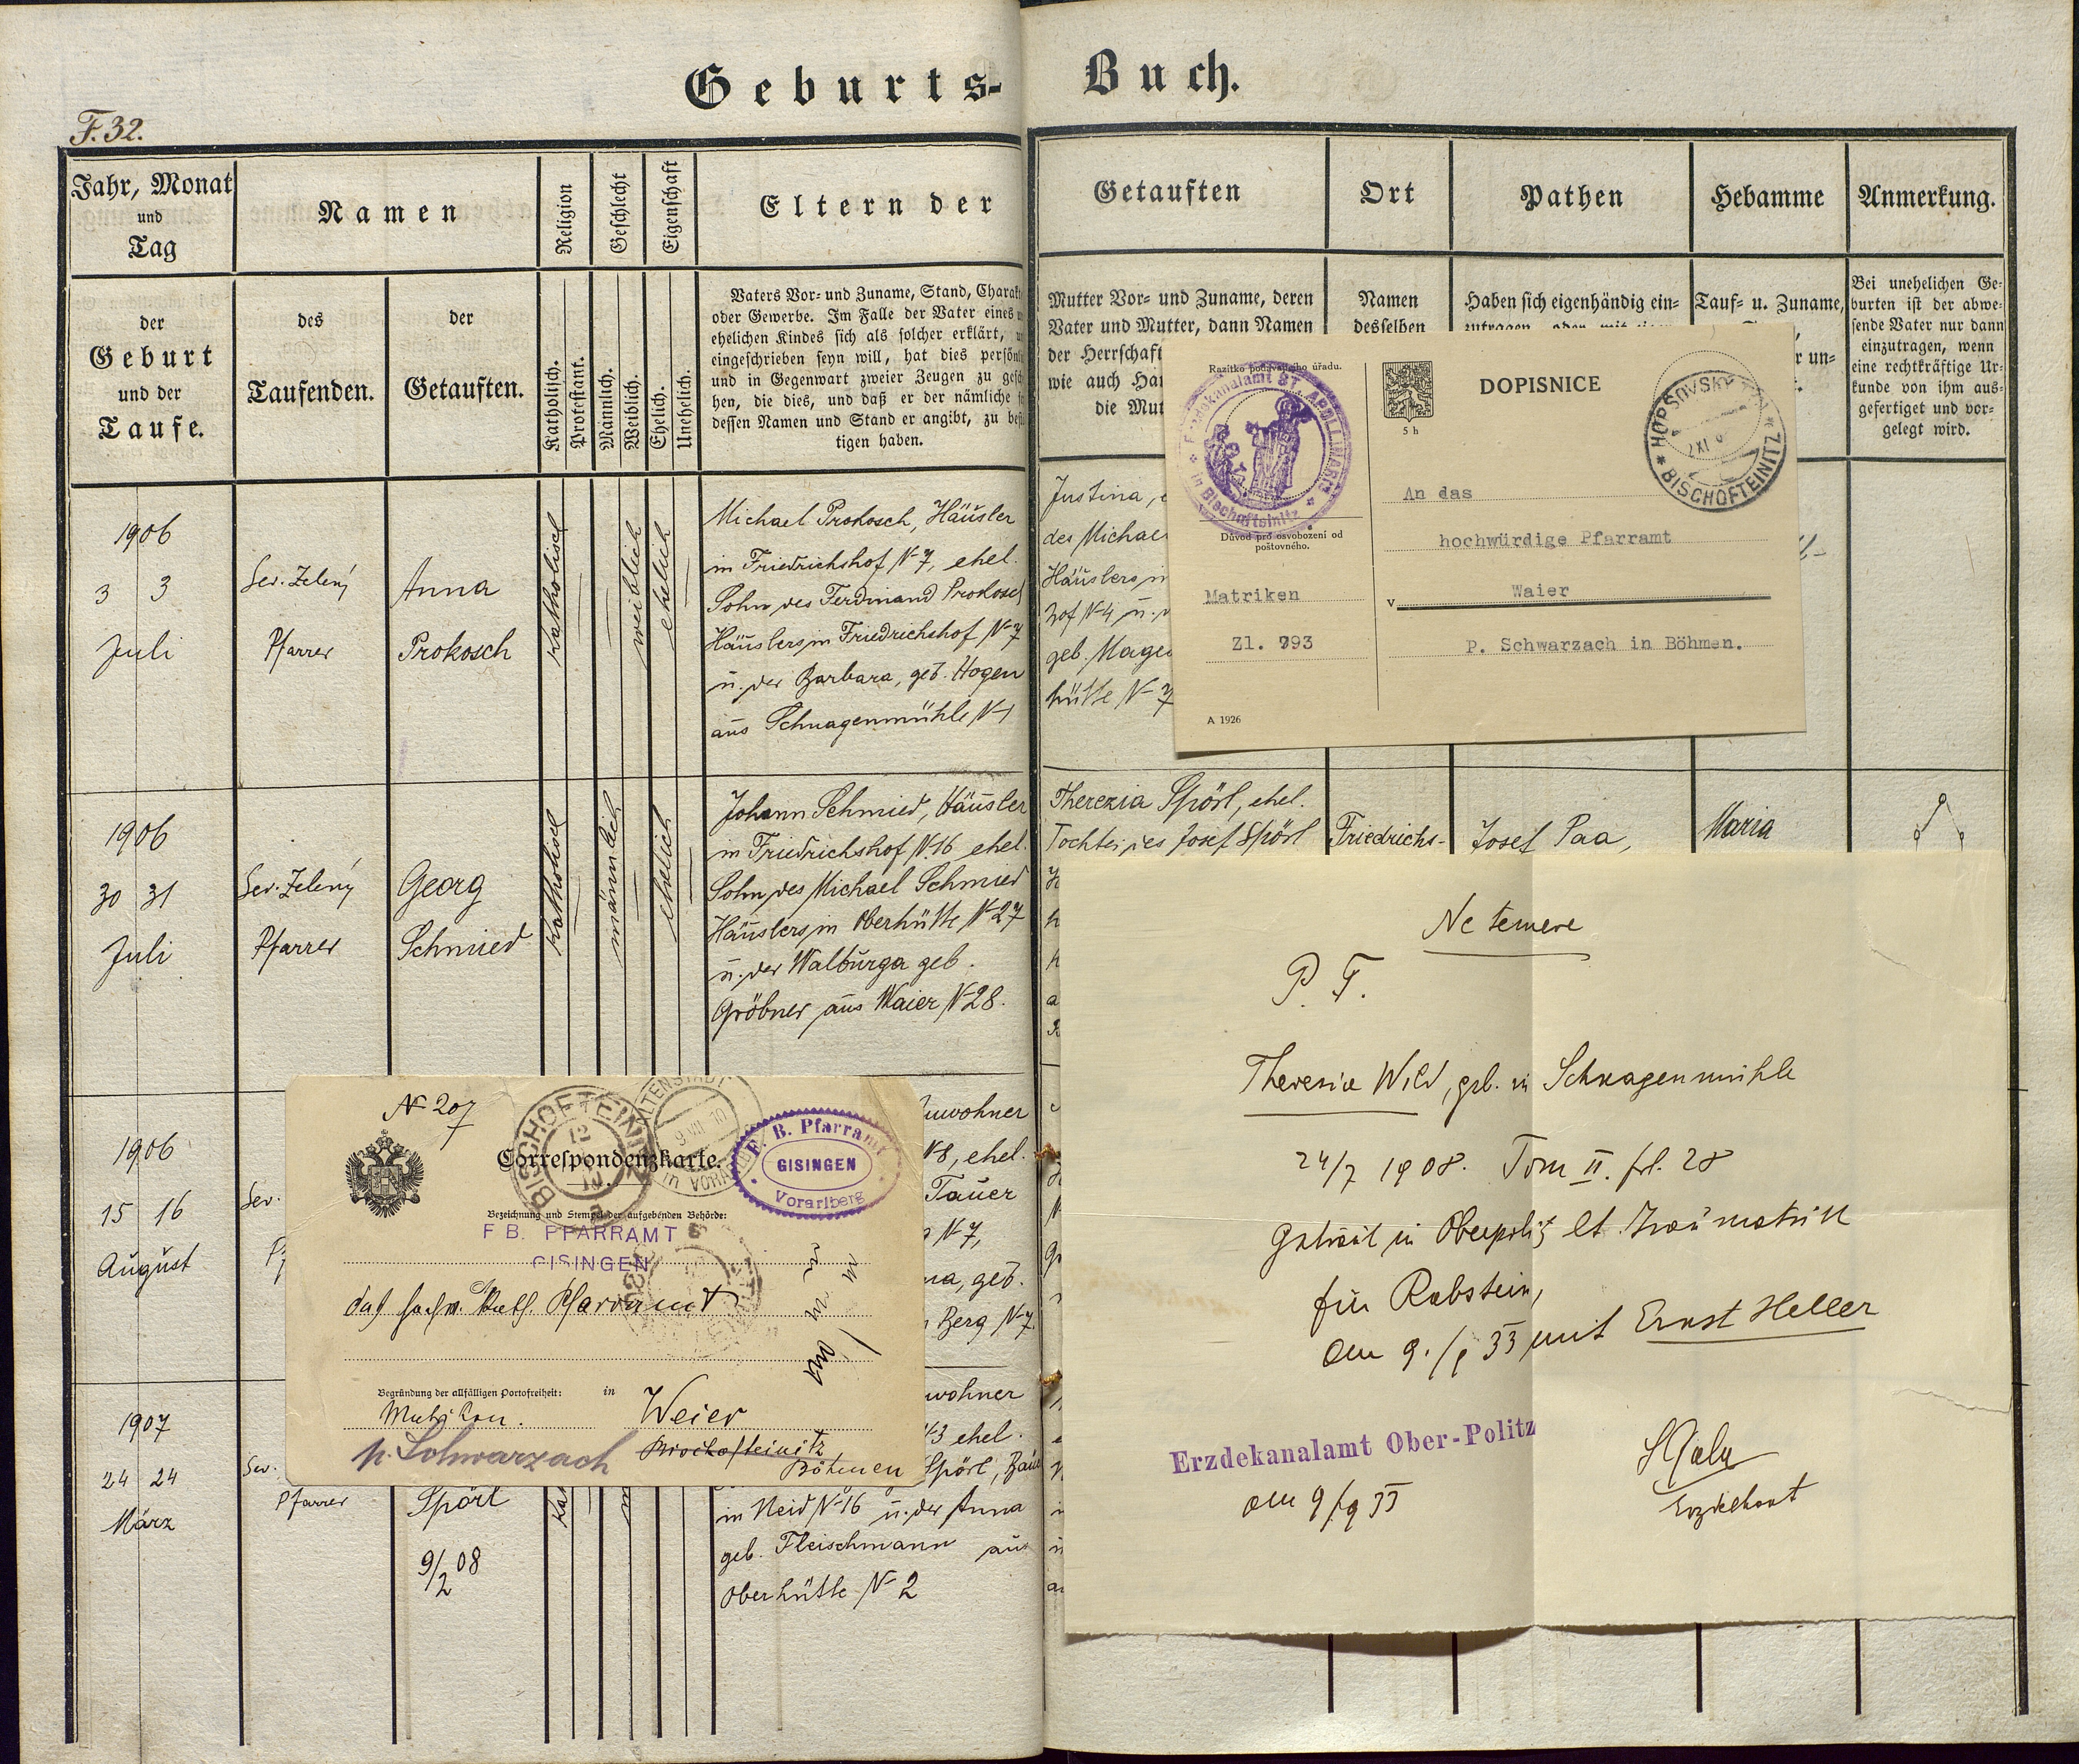 Geburts-
Buch.
F. 32.
Jahr, Monat
und
Tag
Namen
Religion
Geschlecht
Eigenschaft
Eltern der
Getauften
Ort
Pathen
Hebamme
Anmerkung.
der
Geburt
und der
Taufe.
des
Taufenden.
der
Getauften.
Katholisch.
Protestant.
Männlich.
Weiblich.
Ehelich.
Unehelich.
Vaters Vor- und Zuname, Stand, Charak
oder Gewerbe. Im Falle der Vater eines
ehelichen Kindes sich als solcher erklärt,
eingeschrieben seyn will, hat dies persön
und in Gegenwart zweier Zeugen zu gesch
hen, die dies, und daß er der nämliche
dessen Namen und Stand er angibt, zu be
tigen haben.
Mutter Vor- und Zuname, deren
Vater und Mutter, dann Namen
der Herrschaft
wie auch Hau
die Mut
Namen
desselben
Haben sich eigenhändig ein-
zutragen oder mit
Tauf- u. Zuname,
r un-
Bei unehelichen Ge-
burten ist der abwe-
sende Vater nur dann
einzutragen, wenn
eine rechtkräftige Ur-
kunde von ihm aus-
gefertiget und vor-
gelegt wird.
1906
3 3
Juli
Sev. Zelený
Pfarrer
Anna
Prokosch
katholisch
weiblich
ehelich
Michael Prokosch, Häusler
in Friedrichshof N-7, ehel.
Sohn des Ferdinand Prokosch
Häuslers in Friedrichshof N-7
u. der Barbara, geb. Hogen
aus Schnagenmühle N-1
Justina, e
des Michael
Häuslers in
hof N-4 u.
geb. Mage
hütte N-7
Razítko podávajícího úřadu.
Erzdekanalamt ST. APOLLINARIS
in Bischofteinitz
Důvod pro osvobození od
poštovného.
Matriken
Zl. 793
A 1926
5 h
DOPISNICE
HORŠOVSKÝ TÝN
BISCHOFTEINITZ
An das
hochwürdige Pfarramt
v
Waier
P. Schwarzach in Böhmen.
1906
30 31
Juli
Sev. Zelený
Pfarrer
Georg
Schmied
katholisch
männlich
ehelich
Johann Schmied, Häusler
in Friedrichshof N-16 ehel.
Sohn des Michael Schmied
Häuslers in Oberhütte N-27
u. der Walburga geb.
Gröbner aus Waier N-28.
Therezia Spörl, ehel.
Tochter des Josef Spörl
Friedrichs-
Josef Paa,
Maria
1906
15 16
August
Sev.
nwohner
N-8, ehel.
Tauer
N-7,
na, geb.
Berg N-7.
N- 207
Correspondenzkarte.
BISCHOFTEINITZ
ALTENSTADT
in VORARLBERG
F. B. Pfarramt
GISINGEN
Vorarlberg
Bezeichnung und Stempel der aufgebenden Behörde:
F. B. PFARRAMT
GISINGEN
das hochw. kath. Pfarramt
Begründung der allfälligen Portofreiheit:
in
Matriken.
Weier
p. Schwarzach
Bischofteinitz
Böhmen
1907
24 24
März
Sev.
Pfarrer
Spörl
9/2 08
wohner
N-3 ehel.
Spörl, Bau
in Neid N-16 u. der Anna
geb. Fleischmann aus
Oberhütte N-2
Ne temere
P. T.
Theresia Wild, geb. in Schnagenmühle
24/7 1908. Tom II. fol. 28
getraut in Oberpolitz lt. Traumatrik
für Rabstein,
am 9./9 33 mit Ernst Heller
Erzdekanalamt Ober-Politz
am 9/9 33
Erzdechant